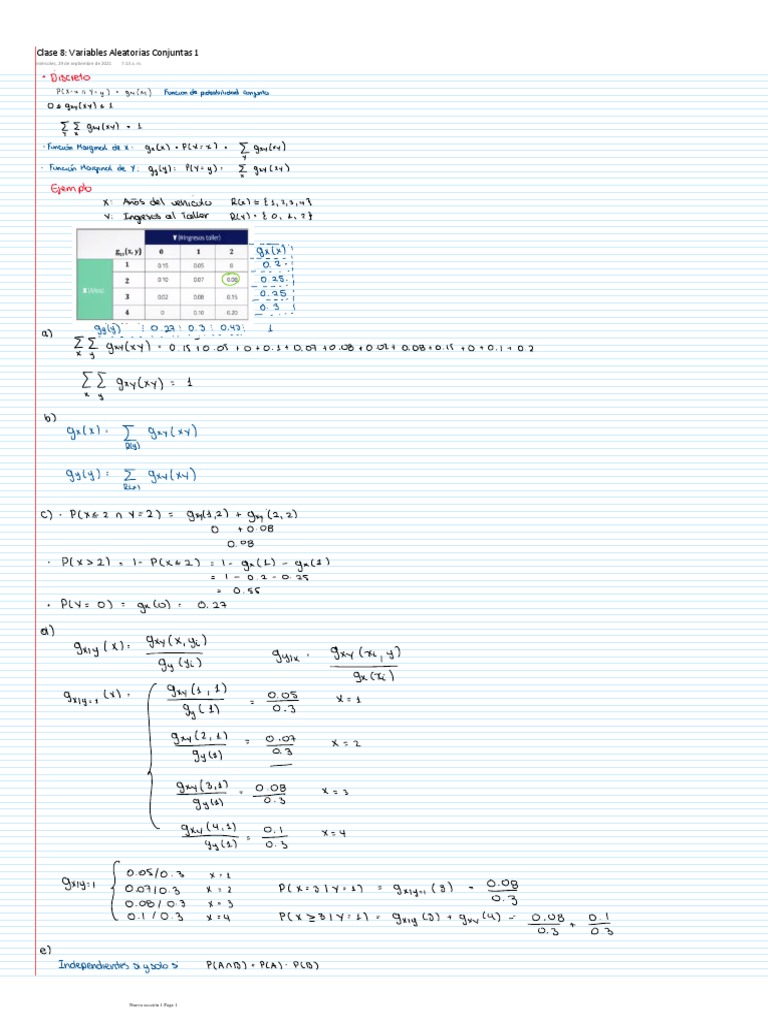 Clase 8: Variables Aleatorias Conjuntas 1
miércoles, 29 de septiembre de 2021 7:13 a. m.
• Discreto
P(X=x ∩ Y=y) = gxy(xy) Función de probabilidad conjunta
0 ≤ gxy(xy) ≤ 1
Σ Σ gxy(xy) = 1
y x
• Función Marginal de X: gx(x) = P(X=x) = Σ gxy(xy)
y
• Función Marginal de Y: gy(y): P(Y=y) = Σ gxy(xy)
x
Ejemplo
X: Años del vehículo R(x) = {1,2,3,4}
Y: Ingresos al Taller R(Y) = {0, 1, 2}
Y (#ingresos taller)
gXY(x, y) 0 1 2 gx(x)
1 0.15 0.05 0 0.2
2 0.10 0.07 0.08 0.25
3 0.02 0.08 0.15 0.25
4 0 0.10 0.20 0.3
gy(y) 0.27 0.3 0.43 1
a)
Σ Σ gxy(xy) = 0.15+0.05+0+0.1+0.07+0.08+0.02+0.08+0.15+0+0.1+0.2
x y
Σ Σ gxy(xy) = 1
x y
b)
gx(x) = Σ gxy(xy)
R(y)
gy(y) = Σ gxy(xy)
R(x)
c) • P(X≤2 ∩ Y=2) = gxy(1,2) + gxy(2,2)
0 + 0.08
0.08
• P(X>2) = 1- P(X≤2) = 1- gx(1) - gx(2)
= 1 - 0.2 - 0.25
= 0.55
• P(Y=0) = gx(0) = 0.27
d)
gx|y(x) = gxy(x,yi) / gy(yi) gy|x = gxy(xi,y) / gx(xi)
gx|y=1(x) = { gxy(1,1) / gy(1) = 0.05 / 0.3 x=1
gxy(2,1) / gy(1) = 0.07 / 0.3 x=2
gxy(3,1) / gy(1) = 0.08 / 0.3 x=3
gxy(4,1) / gy(1) = 0.1 / 0.3 x=4
gx|y=1 { 0.05/0.3 x=1
0.07/0.3 x=2 P(X=3|Y=1) = gx|y=1(3) = 0.08 / 0.3
0.08/0.3 x=3
0.1/0.3 x=4 P(X≥3|Y=1) = gx|y(3) + gxy(4) = 0.08 / 0.3 + 0.1 / 0.3
e)
Independientes si y solo si P(A∩B) = P(A) · P(B)